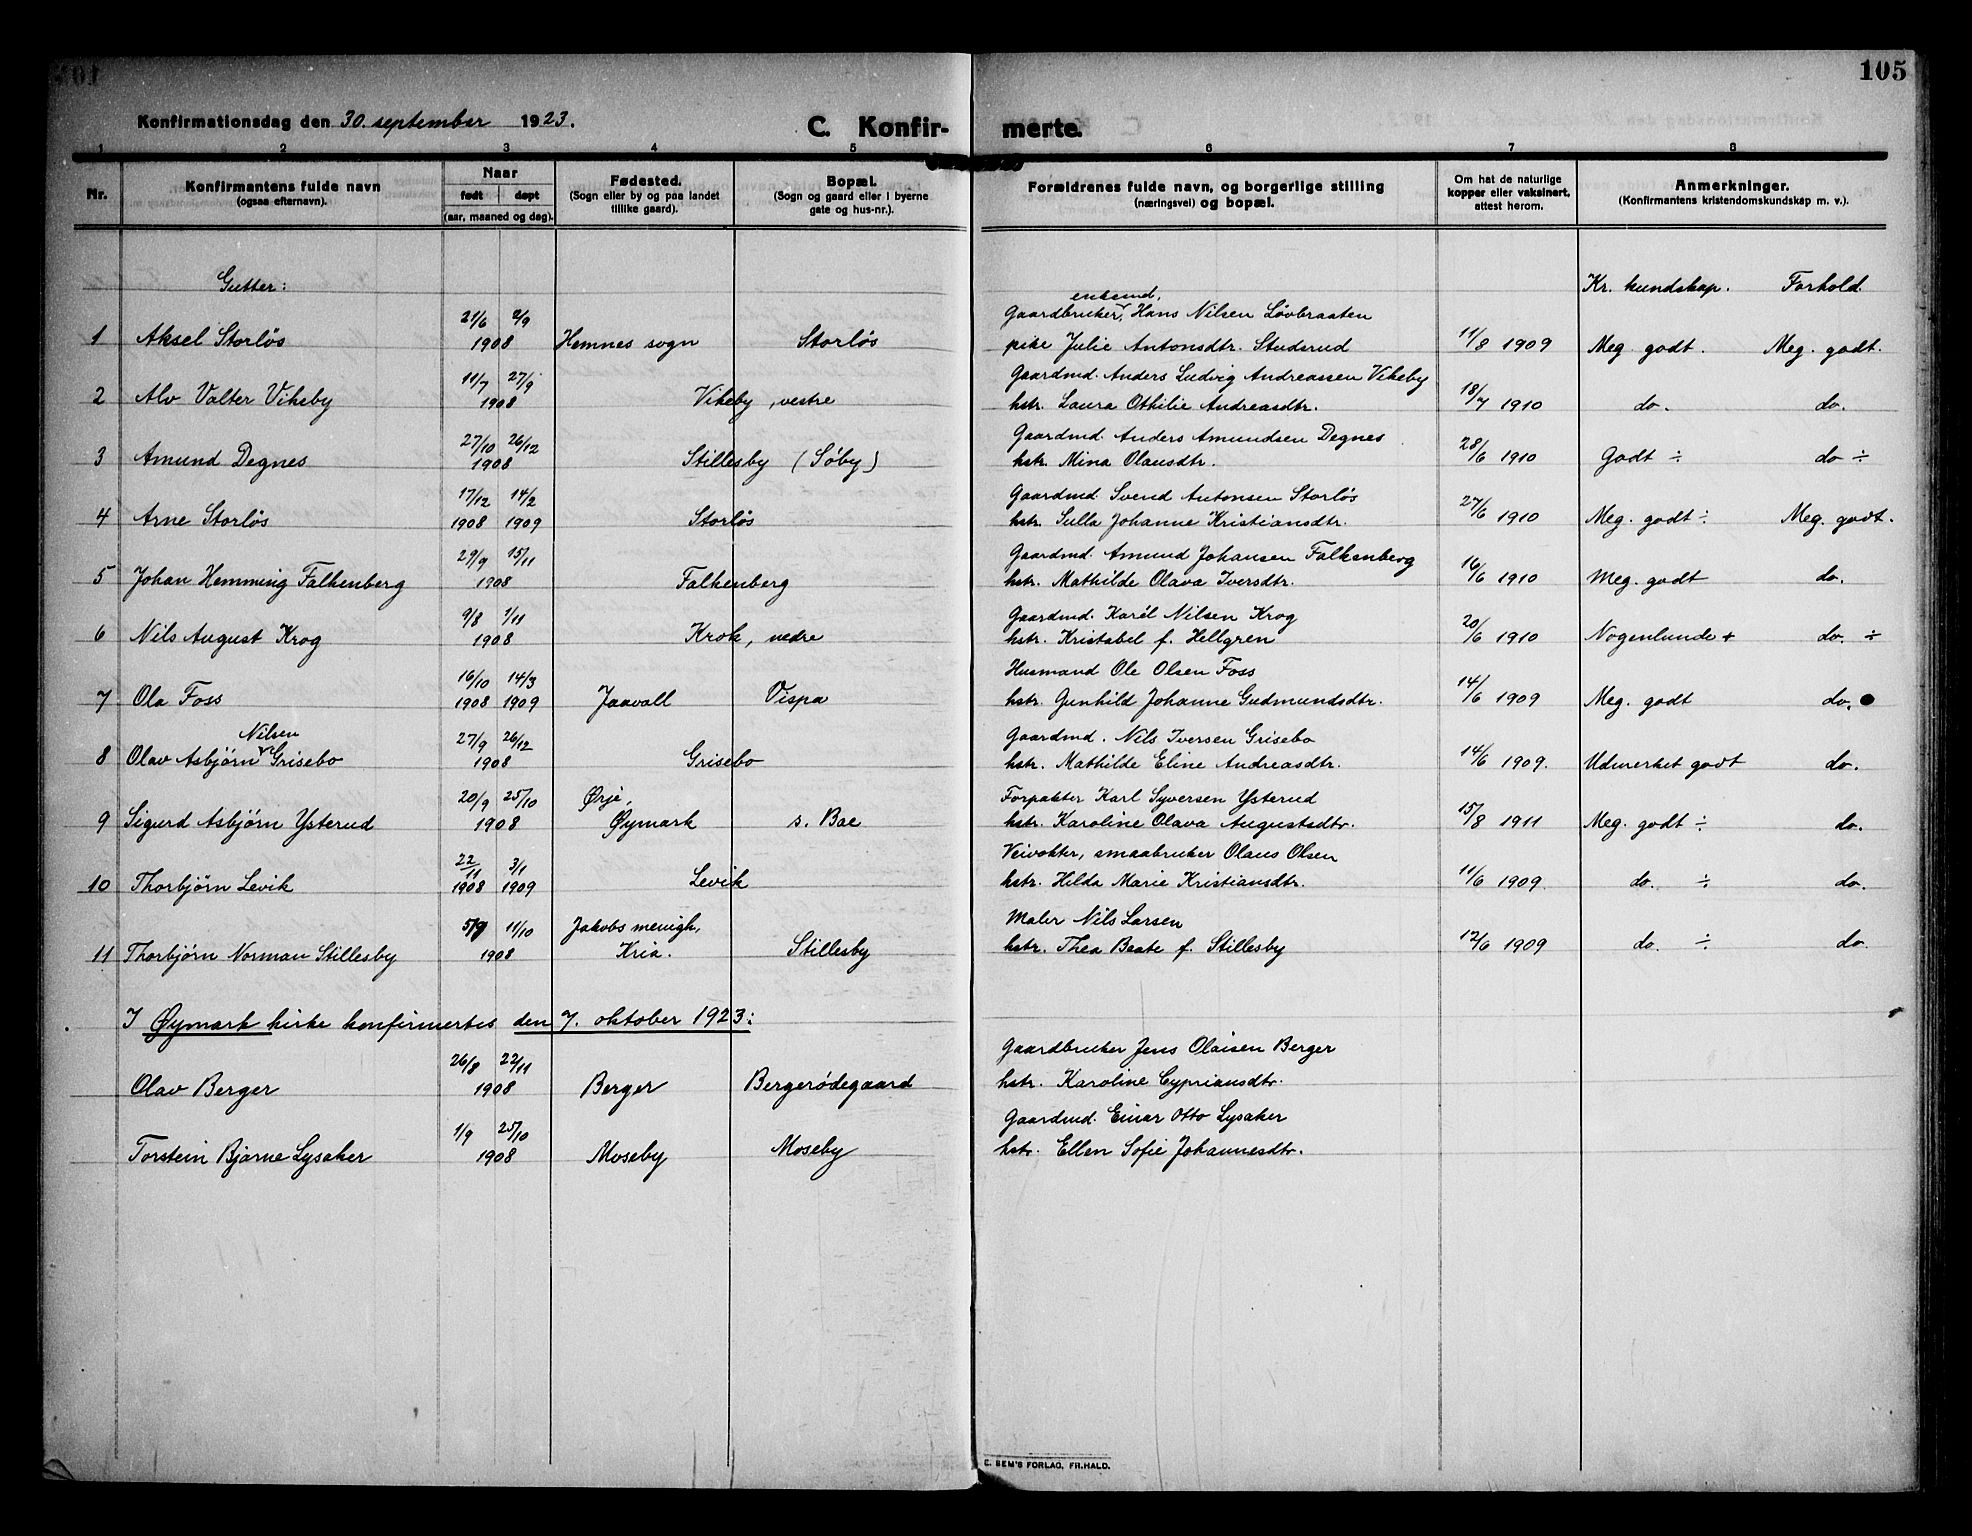 105
Konfirmationsdag den 30. september 1923. C. Konfir- merte.
1 2 3 4 5 6 7 8
Nr. Konfirmantens fulde navn (ogsaa efternavn). Naar født døpt (aar, maaned og dag). Fødested. (Sogn eller by og paa landet tillike gaard). Bopæl. (Sogn og gaard eller i byerne gate og hus-nr.). Forældrenes fulde navn, og borgerlige stilling (næringsvei) og bopæl. Om hat de naturlige kopper eller vaksinert, attest herom. Anmerkninger. (Konfirmantens kristendomskundskap m. v.).
Gutter: Kr. kundskap. Forhold
21/6 2/9 enkemd. Gaardbruker, Hans Nilsen Løvbraaten
1 Aksel Storløs 1908 Hemnes sogn Storløs pike Julie Antonsdtr. Studsrud 11/8 1909 Meg. godt. Meg. godt.
11/7 27/9 Gaardmd. Anders Ludvig Andreassen Vikeby
2 Alv Valter Vikeby 1908 Vikeby, vestre hstr. Laura Othilie Andreasdtr. 18/7 1910 do. do.
27/10 26/12 Gaardmd. Anders Amundsen Degnes
3 Amund Degnes 1908 Stillesby (Søby) hstr. Mina Olausdtr. 28/6 1910 Godt ÷ do ÷
17/12 14/2 Gaardmd. Svend Antonsen Storløs
4 Arne Storløs 1908 1909 Storløs hstr. Julla Johanne Kristiansdtr. 27/6 1910 Meg. godt ÷ Meg. godt.
29/9 15/11 Gaardmd. Amund Johansen Falkenberg
5 Johan Hemming Falkenberg 1908 Falkenberg hstr. Mathilde Olava Iversdtr. 16/6 1910 Meg. godt do.
9/8 1/11 Gaardmd. Karél Nilsen Krog
6 Nils August Krog 1908 Krok, nedre hstr. Kristabel f. Hellgren 20/6 1910 Nogenlunde + do. ÷
16/10 14/3 Husmand Ole Olsen Foss
7 Ola Foss 1908 1909 Jaavall Vispa hstr. Gunhild Johanne Gudmundsdtr. 14/6 1909 Meg. godt do.
Nilsen 27/9 26/12 Gaardmd. Nils Iversen Grisebo
8 Olav Asbjørn Grisebo 1908 Grisebo hstr. Mathilde Eline Andreasdtr. 14/6 1909. Udmerket godt do.
20/9 25/10 Ørje, Forpakter Karl Syversen Ysterud
9 Sigurd Asbjørn Ysterud 1908 Øymark s. Bae hstr. Karoline Olava Augustsdtr. 15/8 1911 Meg. godt ÷ do.
22/11 3/1 Veivokter, smaabruker Olaus Olsen
10 Thorbjørn Levik 1908 1909 Levik hstr. Hilda Marie Kristiansdtr. 11/6 1909. do. ÷ do.
11/10 Jakobs menigh, Maler Nils Larsen
11 Thorbjørn Norman Stillesby 1908 Kria. Stillesby hstr. Thea Beate f. Stillesby 12/6 1909 do. ÷ do.
I Øymark kirke konfirmertes den 7. oktober 1923:
26/8 22/11 Gaardbruker Jens Olaisen Berger
Olav Berger 1908 Berger Bergerødegaard hstr. Karoline Cypriansdtr.
1/9 25/10 Gaardmd. Einar Otto Lysaker
Torstein Bjarne Lysaker 1908 Moseby Moseby hstr. Ellen Sofie Johannesdtr.
E. SEM'S FORLAG, FR.HALD.